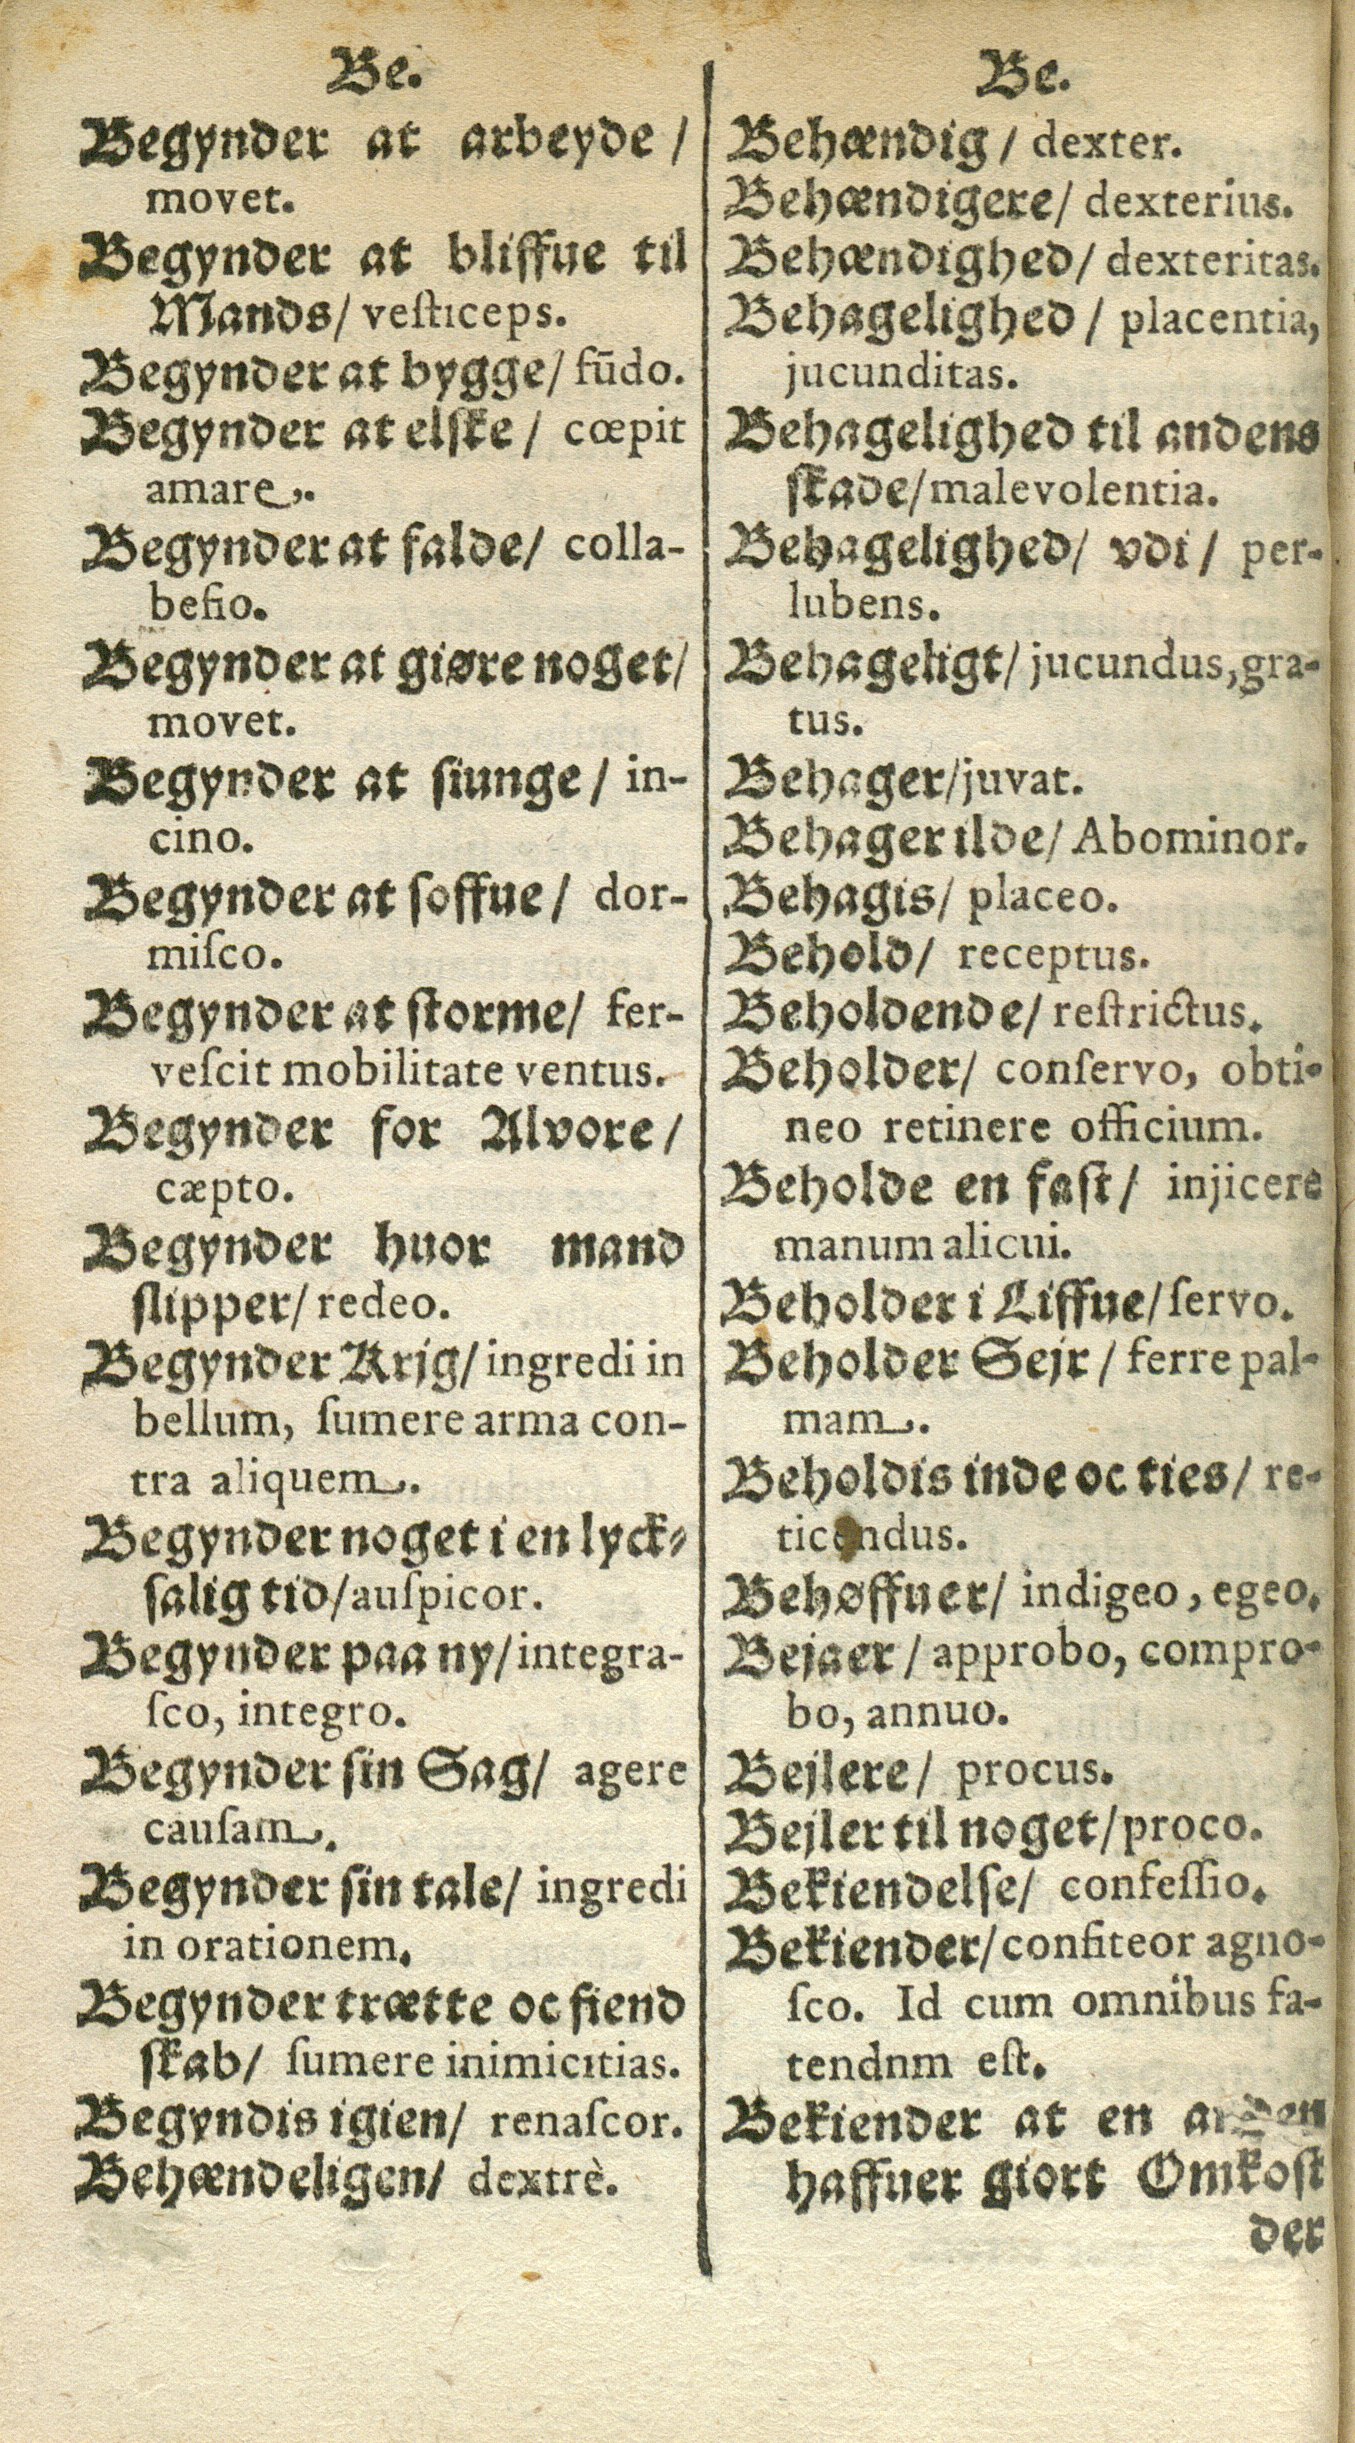 Be.
Begynder at arbeyde /
movet.
Begynder at bliffue til
Mands/ veſticeps.
Begynder at bygge/ fūdo.
Begynder at elſke / cœpit
amare.
Begynder at falde/ colla-
befio.
Begynder at giøre noget/
movet.
Begynder at ſiunge / in-
cino.
Begynder at ſoffue / dor-
miſco.
Begynder at ſtorme/ fer-
veſcit mobilitate ventus.
Begynder for Alvore /
cæpto.
Begynder huor mand
ſlipper/ redeo.
Begynder Krjg/ ingredi in
bellum, ſumere arma con-
tra aliquem.
Begynder noget i en lyck-
ſalig tid/auſpicor.
Begynder paa ny/integra-
ſco, integro.
Begynder ſin Sag/ agere
cauſam.
Begynder ſin tale/ ingredi
in orationem.
Begynder trætte oc fiend
ſkab/ ſumere inimicitias.
Begyndis igien/ renaſcor.
Behændeligen/ dextrè.
Be.
Behændig / dexter.
Behændigere/ dexterius.
Behændighed/ dexteritas.
Behagelighed / placentia,
jucunditas.
Behagelighed til andens
ſkade/malevolentia.
Behagelighed/ vdi / per-
lubens.
Behageligt/ jucundus,gra-
tus.
Behager/juvat.
Behager ilde/ Abominor.
Behagis/ placeo.
Behold/ receptus.
Beholdende/ reſtrictus.
Beholder/ conſervo, obti-
neo retinere officium.
Beholde en faſt / injicere
manum alicui.
Beholder i Liffue/ſervo.
Beholder Sejr / ferre pal-
mam.
Beholdis inde oc ties/ re-
ticendus.
Behøffuer/ indigeo, egeo.
Bejaer / approbo, compro-
bo, annuo.
Bejlere/ procus.
Bejler til noget/proco.
Bekiendelſe/ confeſſio.
Bekiender/confiteor agno-
ſco. Id cum omnibus fa-
tendnm eſt.
Bekiender at en anden
haffuer giort Omkoſt
der